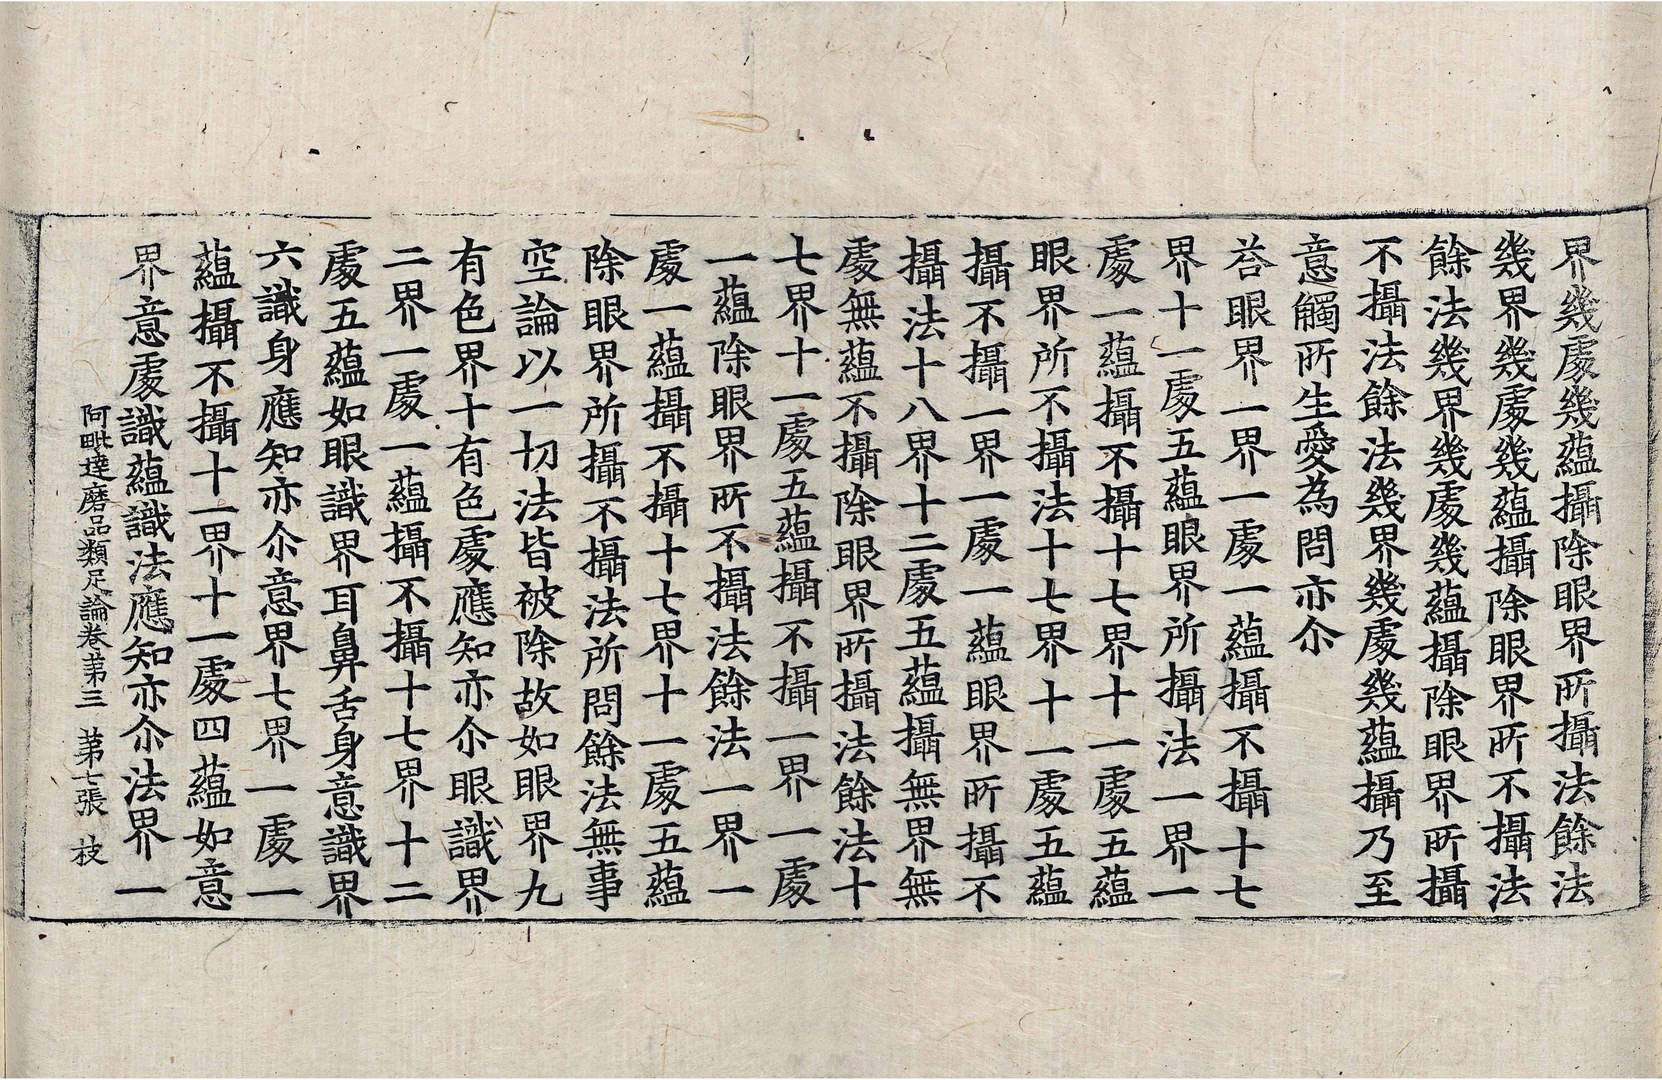 界幾處幾蘊攝除眼界所攝法餘法
幾界幾處幾蘊攝除眼界所不攝法
餘法幾界幾處幾蘊攝除眼界所攝
不攝法餘法幾界幾處幾蘊攝乃至
意觸所生愛為問亦尒
荅眼界一界一處一蘊攝不攝十七
界十一處五蘊眼界所攝法一界一
處一蘊攝不攝十七界十一處五蘊
眼界所不攝法十七界十一處五蘊
攝不攝一界一處一蘊眼界所攝不
攝法十八界十二處五蘊攝無界無
處無蘊不攝除眼界所攝法餘法十
七界十一處五蘊攝不攝一界一處
一蘊除眼界所不攝法餘法一界一
處一蘊攝不攝十七界十一處五蘊
除眼界所攝不攝法所問餘法無事
空論以一切法皆被除故如眼界九
有色界十有色處應知亦尒眼識界
二界一處一蘊攝不攝十七界十二
處五蘊如眼識界耳鼻舌身意識界
六識身應知亦尒意界七界一處一
蘊攝不攝十一界十一處四蘊如意
界意處識蘊識法應知亦尒法界一
阿毗達磨品類足論卷苐三 苐七張 枝